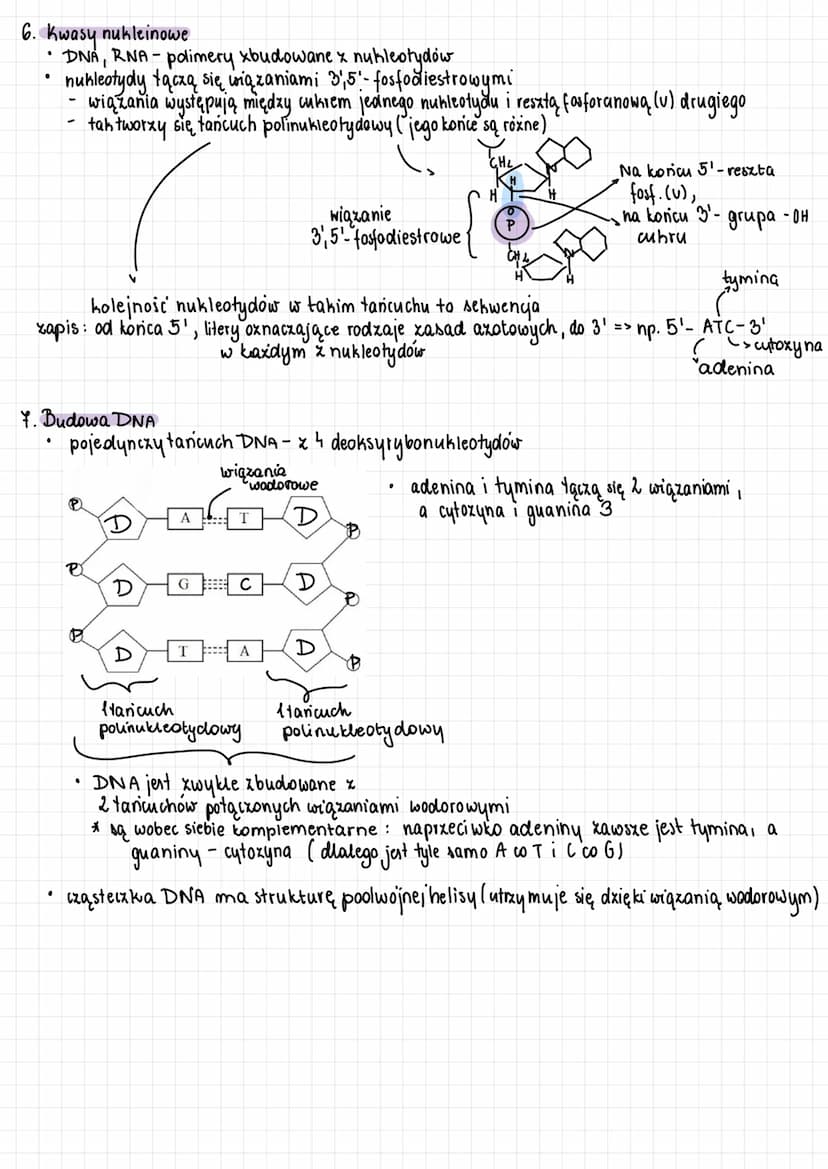 6. Kwasy nukleinowe
• DNA, RNA - polimery zbudowane z nukleotydów
• nukleotydy łączą się wiązaniami 3',5'-fosfodiestrowymi
- wiązania występują między cukrem jednego nukleotydu i resztą fosforanową (v) drugiego
- tak tworzy się łańcuch polinukleotydowy (jego końce są różne)
CH₂
H
H
H
O
P
CH₂
N
H
H
wiązanie
3',5'-fosfodiestrowe
Na końcu 5'-reszta
fosf. (v),
na końcu 3'- grupa -OH
cukru
kolejność nukleotydów w takim łańcuchu to sekwencja
zapis: od końca 5', litery oznaczające rodzaje zasad azotowych, do 3' => np. 5'- ATC-3'
w każdym z nukleotydów
tymina
cytozyna
adenina
7. Budowa DNA
• pojedynczy łańcuch DNA - z 4 deoksyrybonukleotydów
wiązania
wodorowe
• adenina i tymina łączą się 2 wiązaniami,
a cytozyna i guanina 3
P D A T D P
P D G C D P
P D T A D P
1 łańcuch
polinukleotydowy
1 łańcuch
polinukleotydowy
• DNA jest zwykle zbudowane z
2 łańcuchów połączonych wiązaniami wodorowymi
* są wobec siebie komplementarne: naprzeciwko adeniny zawsze jest tymina, a
guaniny - cytozyna (dlatego jest tyle samo A co T i C co G)
• cząsteczka DNA ma strukturę podwójnej helisy (utrzymuje się dzięki wiązanią wodorowym)